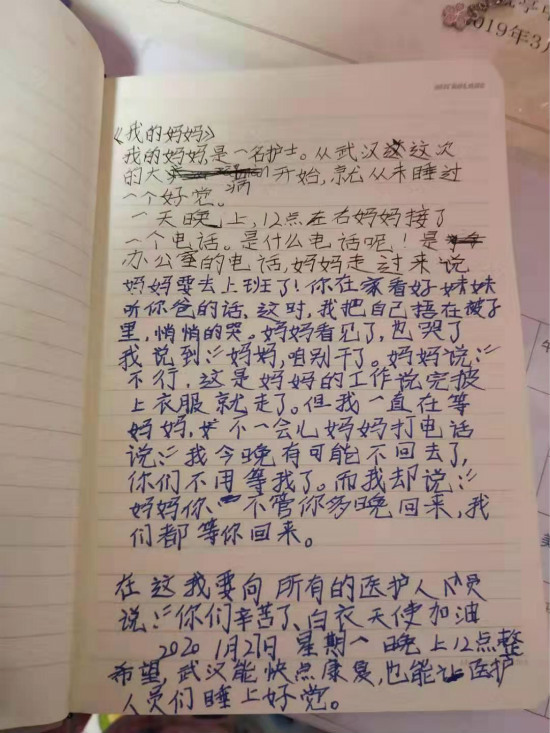 2019年3月
《我的妈妈》
我的妈妈,是一名护士。从武汉这次
的大病开始,就从未睡过
一个好觉。
一天晚上,12点左右妈妈接了
一个电话。是什么电话呢!是
办公室的电话,妈妈走过来说
妈妈要去上班了!你在家看好妹妹
听你爸的话,这时,我把自己捂在被子
里,悄悄的哭。妈妈看见了,也哭了
我说到:“妈妈,咱别干了。妈妈说:“
不行,这是妈妈的工作说完披
上衣服就走了。但我一直在等
妈妈,不一会儿妈妈打电话
说:“我今晚有可能不回去了,
你们不用等我了。而我却说:“
妈妈你不管你多晚回来,我
们都等你回来。
在这我要向所有的医护人员
说:“你们辛苦了、白衣天使加油
2020 1月27日 星期一 晚上12点整
希望,武汉能快点康复,也能让医护
人员们睡上好觉。